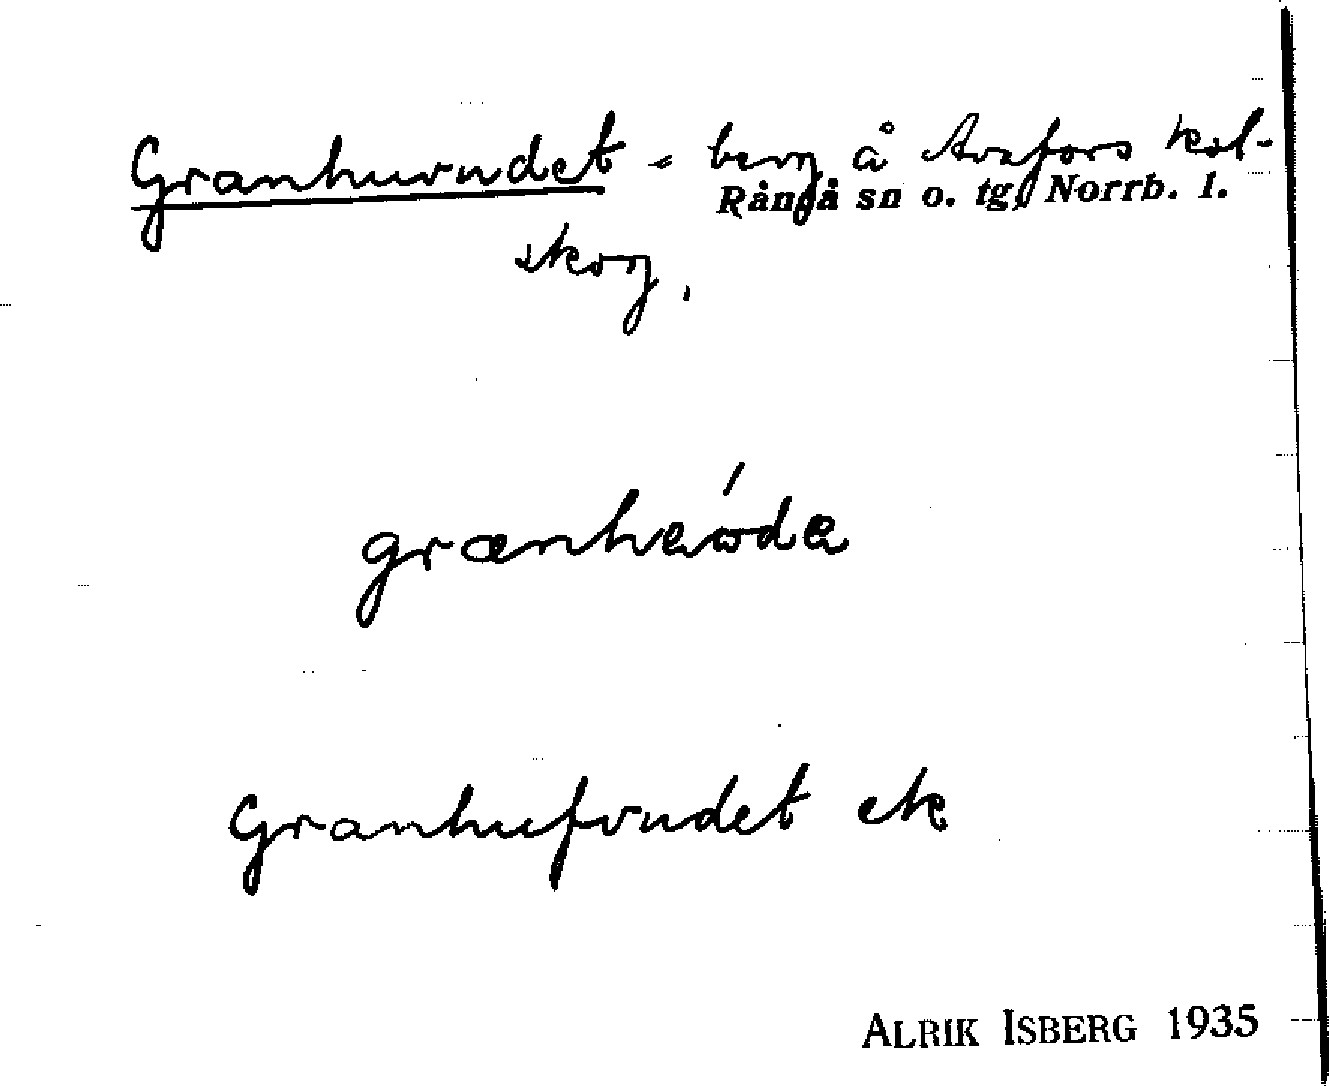 Granhuvudet - berg å Avafors kol-
Råneå sn o. tg, Norrb. l.
skog.
Granhufvudet ek
ALRIK ISBERG 1935